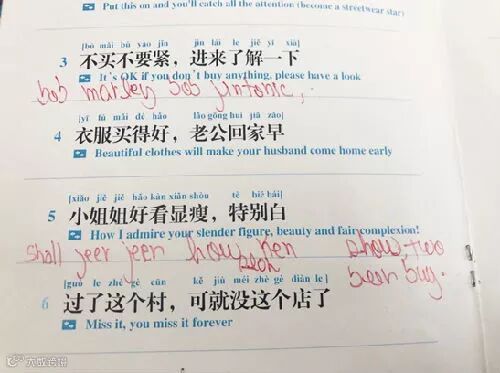 Put this on and you'll catch all the attention (become a streetwear star)
[bù mǎi bù yào jǐn jìn lái le jiě yī xià]
3 不买不要紧，进来了解一下
It's OK if you don't buy anything, please have a look
bob marley bob jintonic,.
[yī fú mǎi dé hǎo lǎo gōng huí jiā zǎo]
4 衣服买得好，老公回家早
Beautiful clothes will make your husband come home early
[xiǎo jiě jiě hǎo kàn xiǎn shòu tè bié bái]
5 小姐姐好看显瘦，特别白
How I admire your slender figure, beauty and fair complexion!
shall jeer jeer how ken show, two
bean bean buy.
[guò le zhè gè cūn kě jiù méi zhè gè diàn le]
6 过了这个村，可就没这个店了
Miss it, you miss it forever
大威吉讲